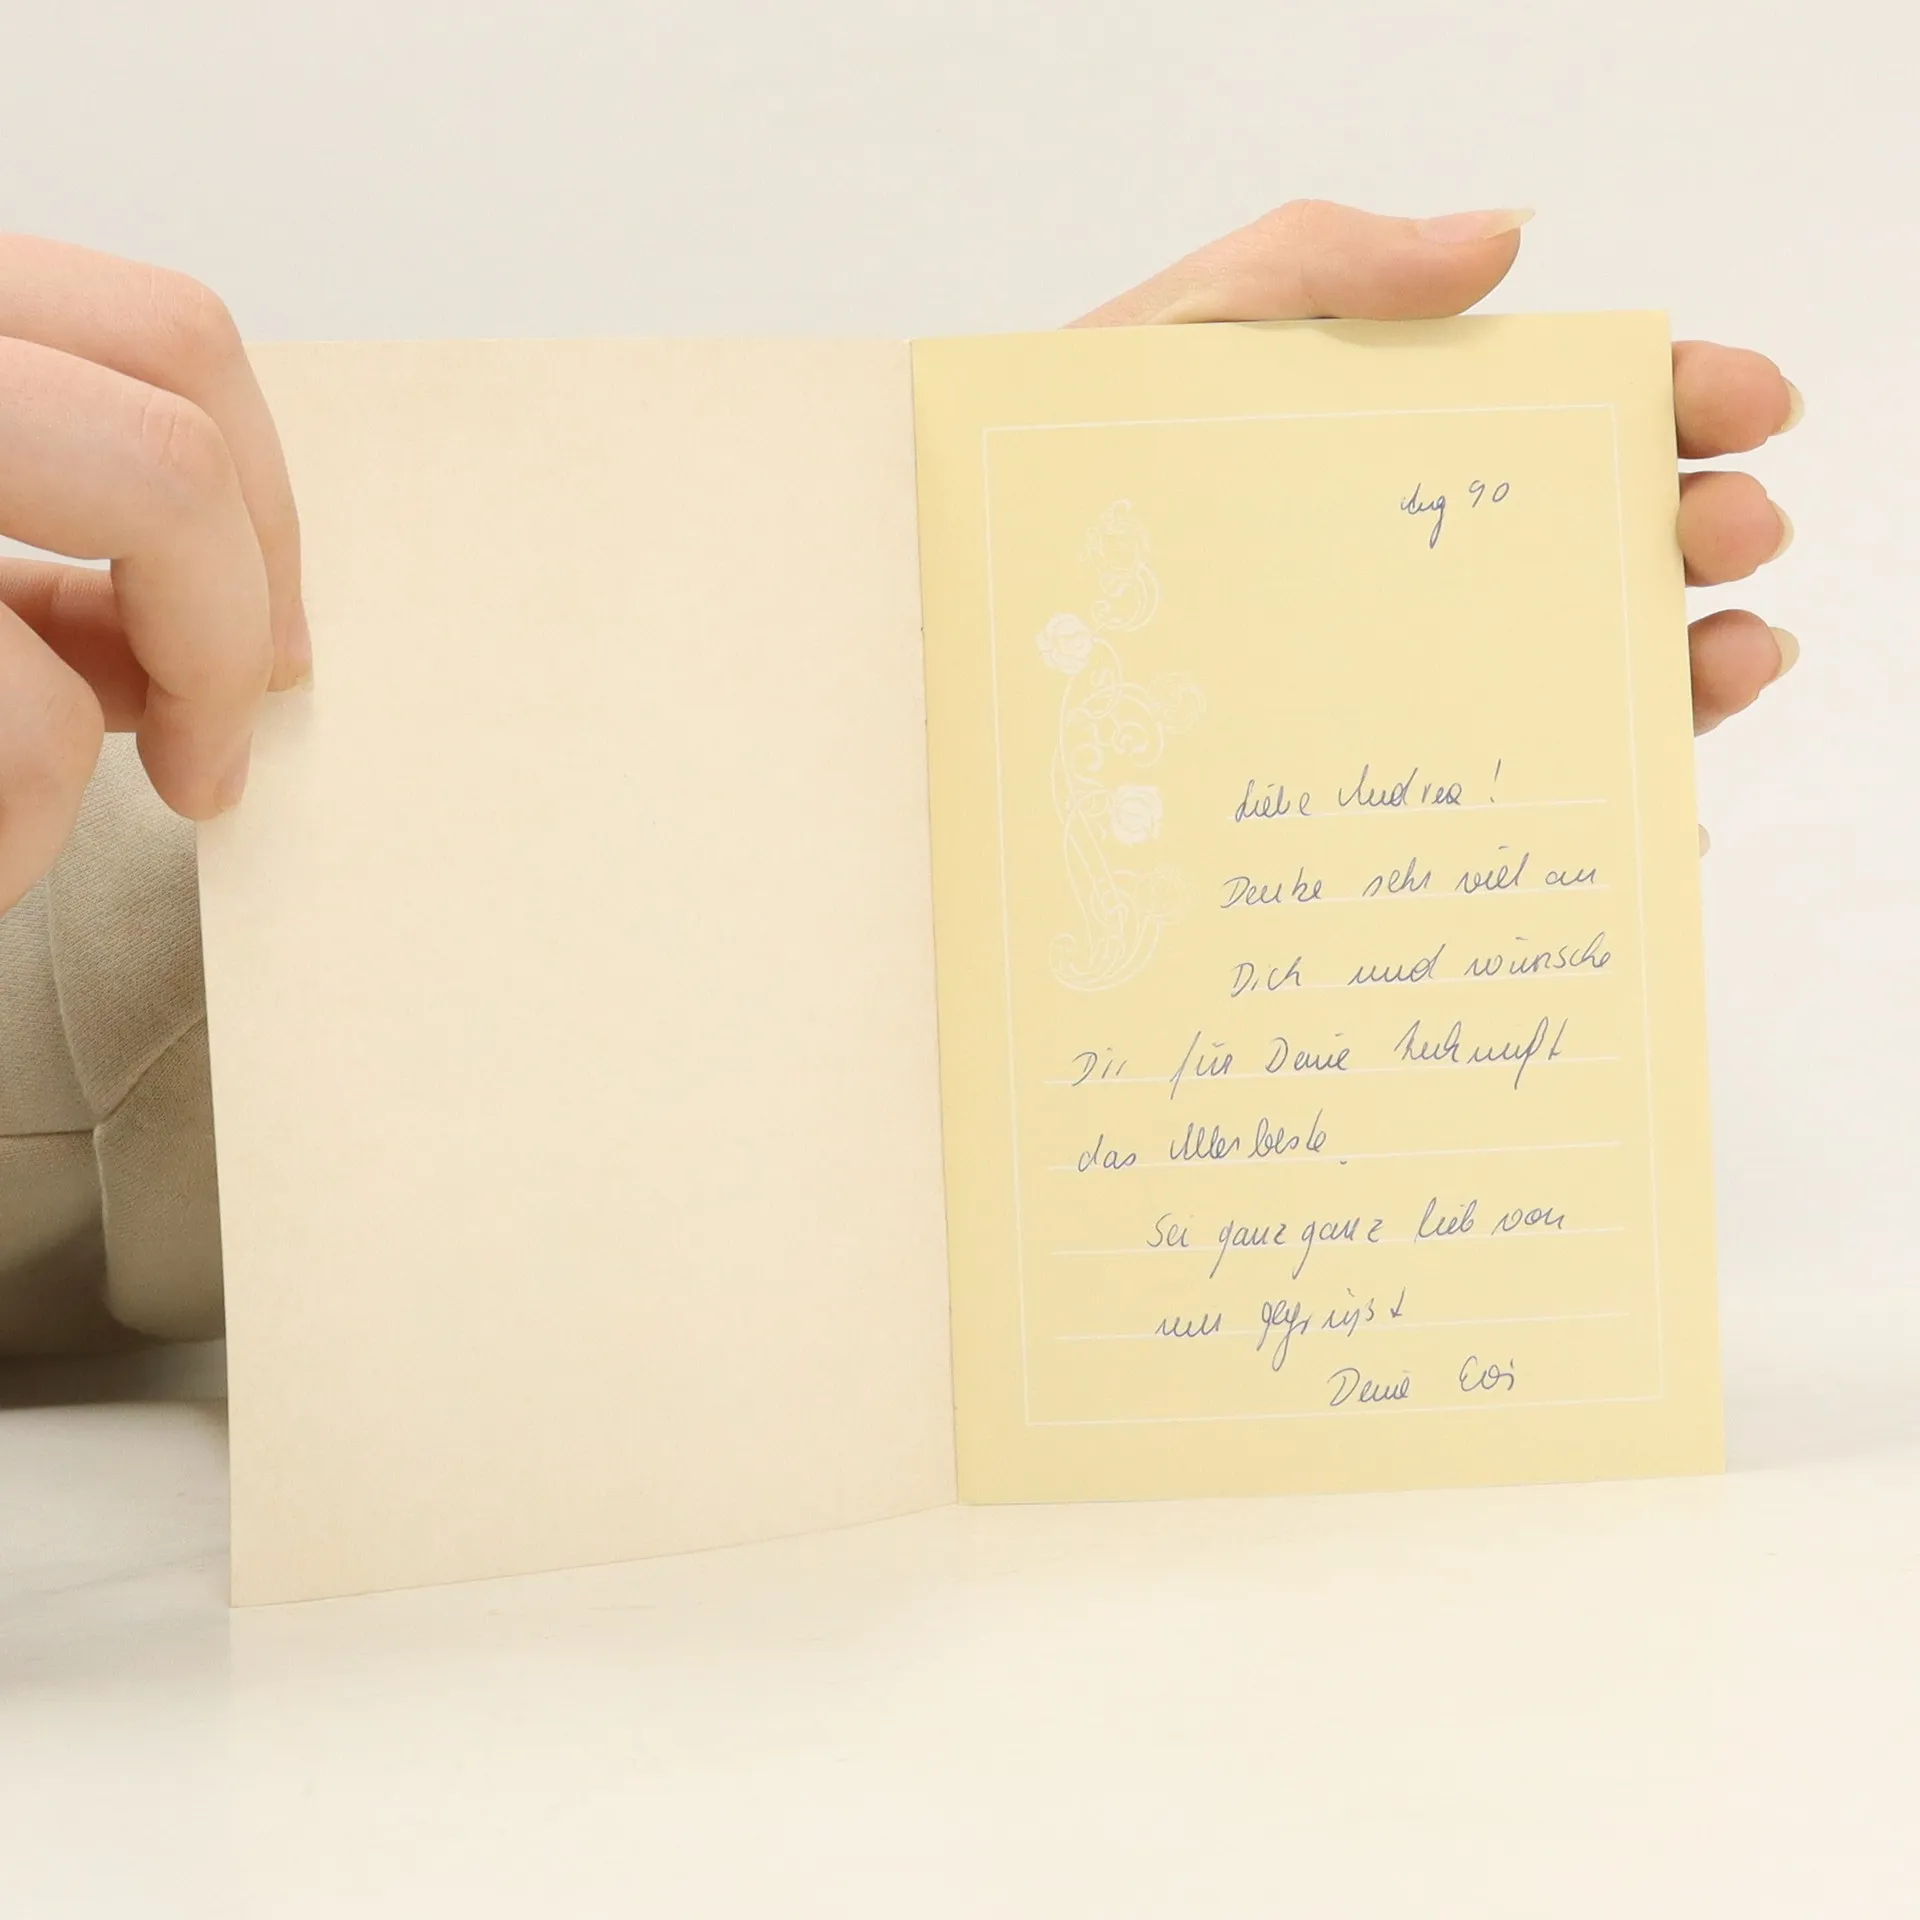 Aug 90
Liebe Andrea!
Denke sehr viel an
Dich und wünsche
Dir für Deine Zukunft
das Allerbeste.
Sei ganz ganz lieb von
mir gegrüßt
Deine